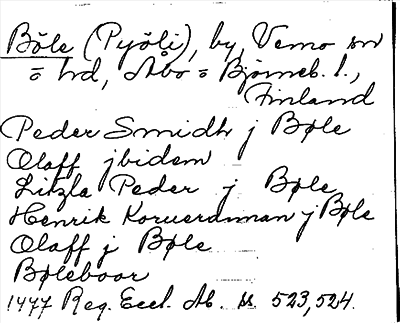 Böle (Pyöli), by, Vemo sn
o hd, Åbo o Björneb. l.,
Finland
Peder Smidh j Bøle
Olaff jbidem
Litzla Peder j Bøle
Henrik Koruerdnman j Bøle
Olaff j Bøle
Bøleboar
1477 Reg. Eccl. Ab. s. 523, 524.